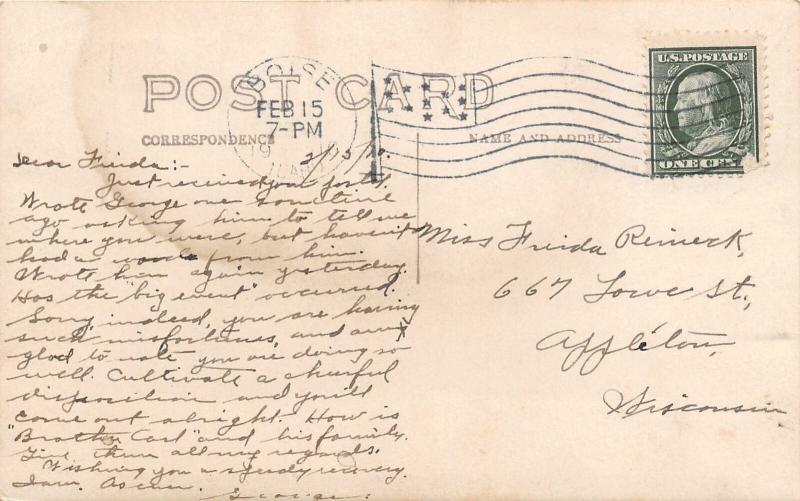 POST CARD
CORRESPONDENCE
NAME AND ADDRESS
BOISE
FEB 15
7-PM
19
IDAHO
U.S. POSTAGE
ONE CENT
2/15/10.
Dear Frieda:-
Just received your postal.
Wrote George one sometime
ago asking him to tell me
where you were, but haven't
had a word from him.
Wrote him again yesterday.
Has the "big event" occurred.
Sorry, indeed, you are having
such misfortunes, and am
glad to note you are doing so
well. Cultivate a cheerful
disposition and you'll
come out alright. How is
"Brother Carl" and his family.
Give them all my regards.
Wishing you a speedy recovery
I am. As ever.
George.
Miss Frieda Reineck,
667 Lowe St.,
Appleton,
Wisconsin